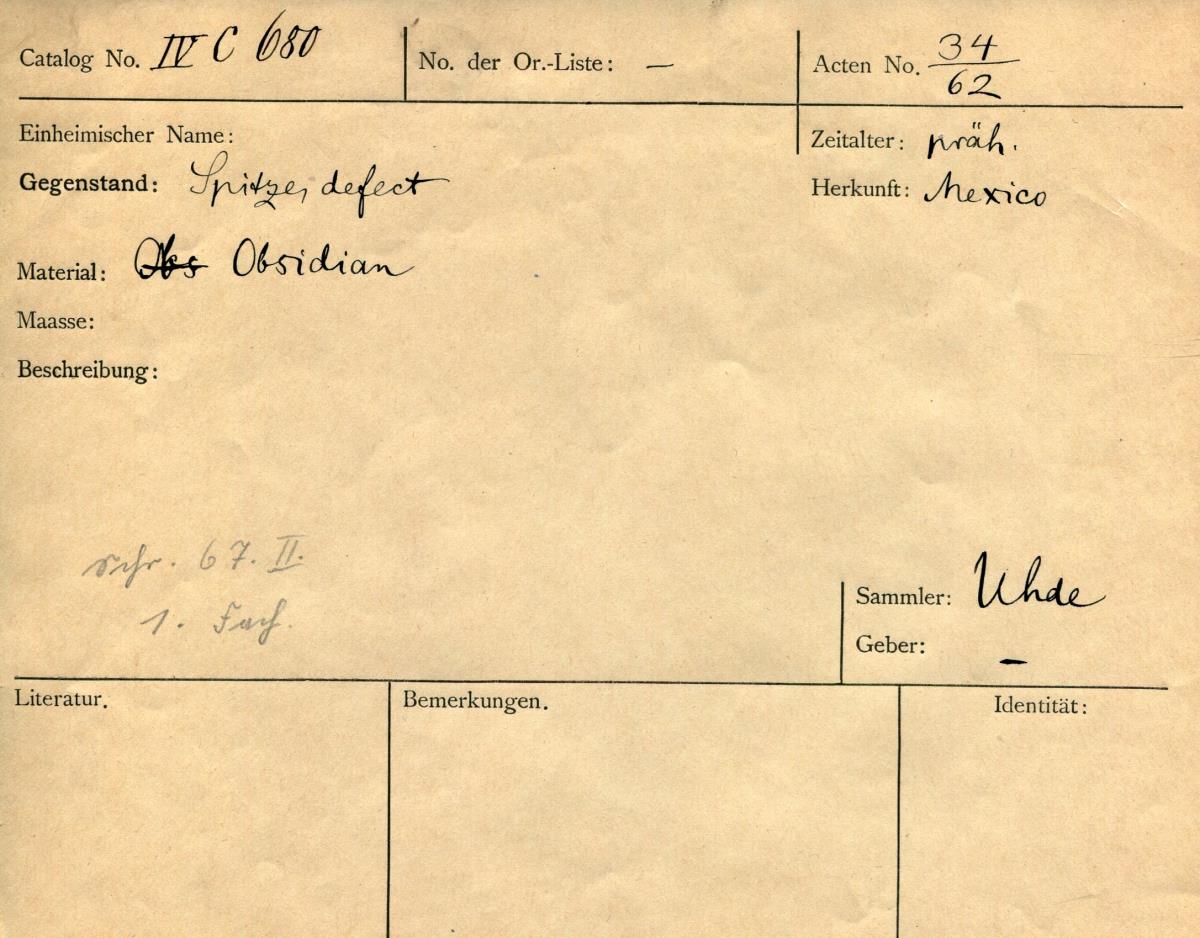 Catalog No. IV C 680 No. der Or.-Liste: — Acten No. 34/62
Einheimischer Name: Zeitalter: präh.
Gegenstand: Spitze, defect Herkunft: Mexico
Material: Obs Obsidian
Maasse:
Beschreibung:
Schr. 67. II.
1. Fach.
Sammler: Uhde
Geber: —
Literatur. Bemerkungen. Identität: